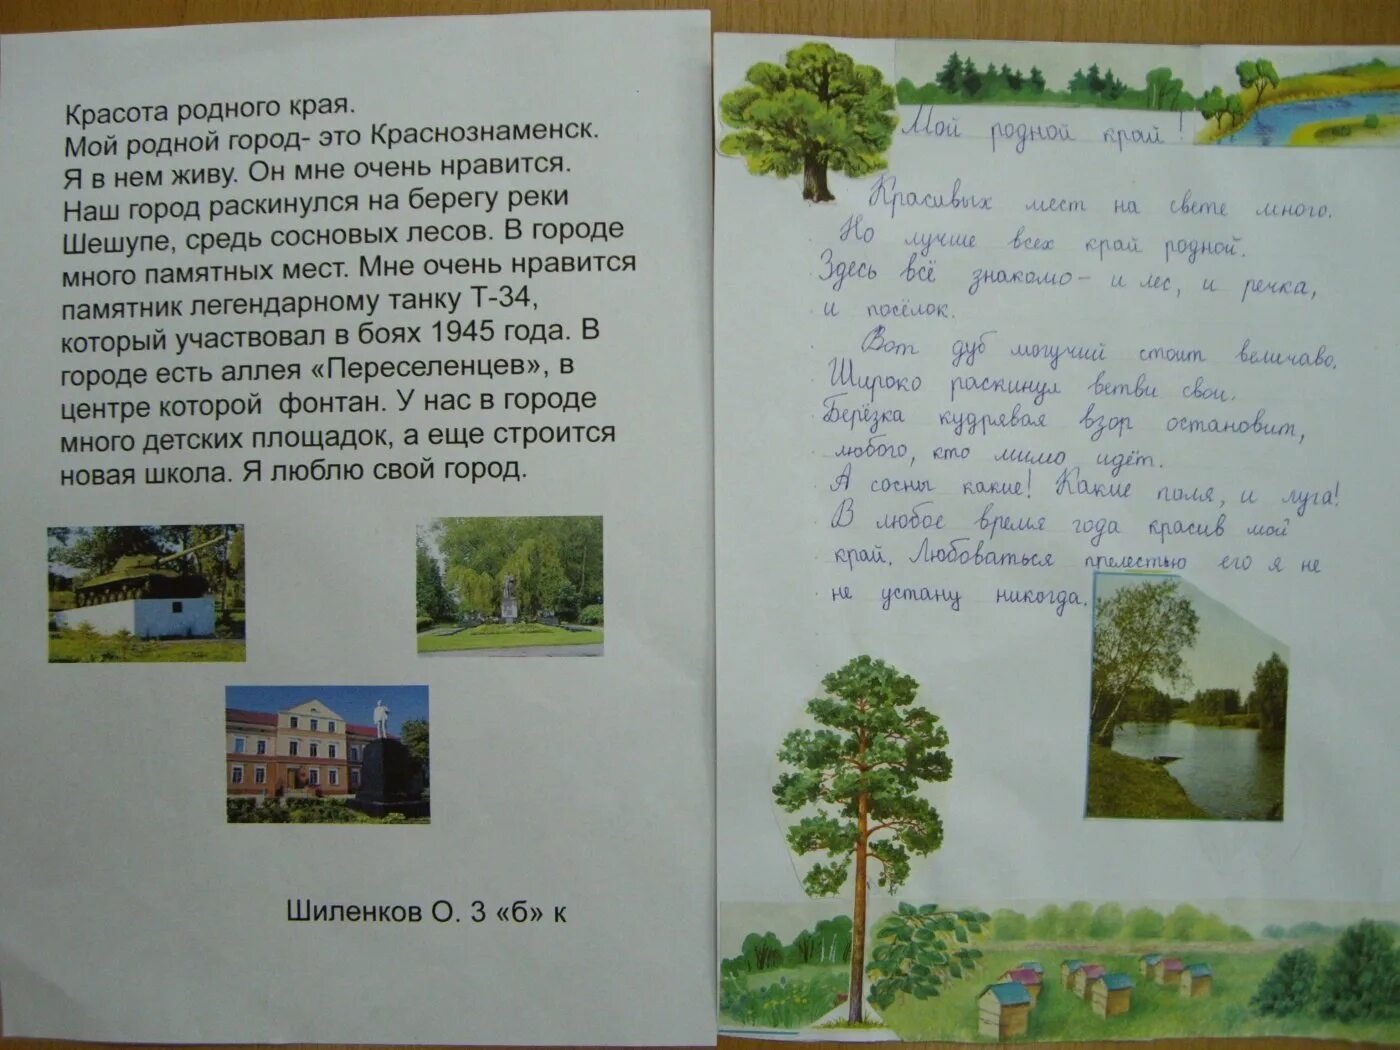 Красота родного края.
Мой родной город- это Краснознаменск.
Я в нем живу. Он мне очень нравится.
Наш город раскинулся на берегу реки
Шешупе, средь сосновых лесов. В городе
много памятных мест. Мне очень нравится
памятник легендарному танку Т-34,
который участвовал в боях 1945 года. В
городе есть аллея «Переселенцев», в
центре которой фонтан. У нас в городе
много детских площадок, а еще строится
новая школа. Я люблю свой город.
Шиленков О. 3 «б» к
Мой родной край!
Красивых мест на свете много.
Но лучше всех край родной.
Здесь всё знакомо- и лес, и речка,
и посёлок.
Вот дуб могучий стоит величаво.
Широко раскинул ветви свои.
Берёзка кудрявая взор остановит,
любого, кто мимо идёт.
А сосны какие! Какие поля, и луга!
В любое время года красив мой
край. Любоваться прелестью его я не
не устану никогда.